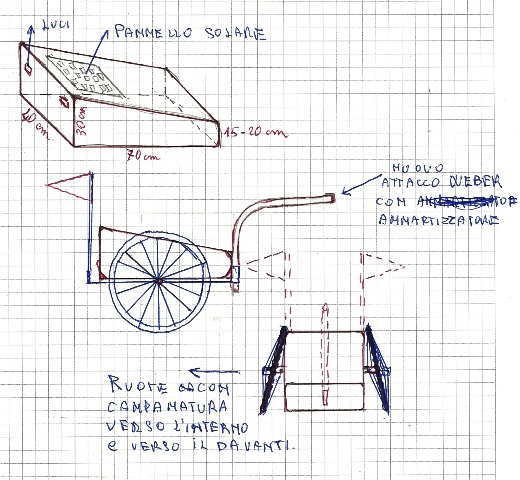 LUCI
PANNELLO SOLARE
40 cm
30 cm
15-20 cm
70 cm
NUOVO
ATTACCO WEBER
CON
AMMARTIZZATORE
RUOTE CON
CAMPANATURA
VERSO L'INTERNO
E VERSO IL DAVANTI.